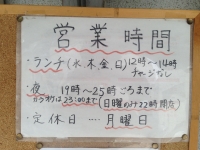 営業時間
・ランチ(水木金日)12時〜14時
チャージなし
・夜 19時〜25時ごろまで
カラオケは23:00まで(日曜のみ22時閉店)
・定休日‥‥月曜日